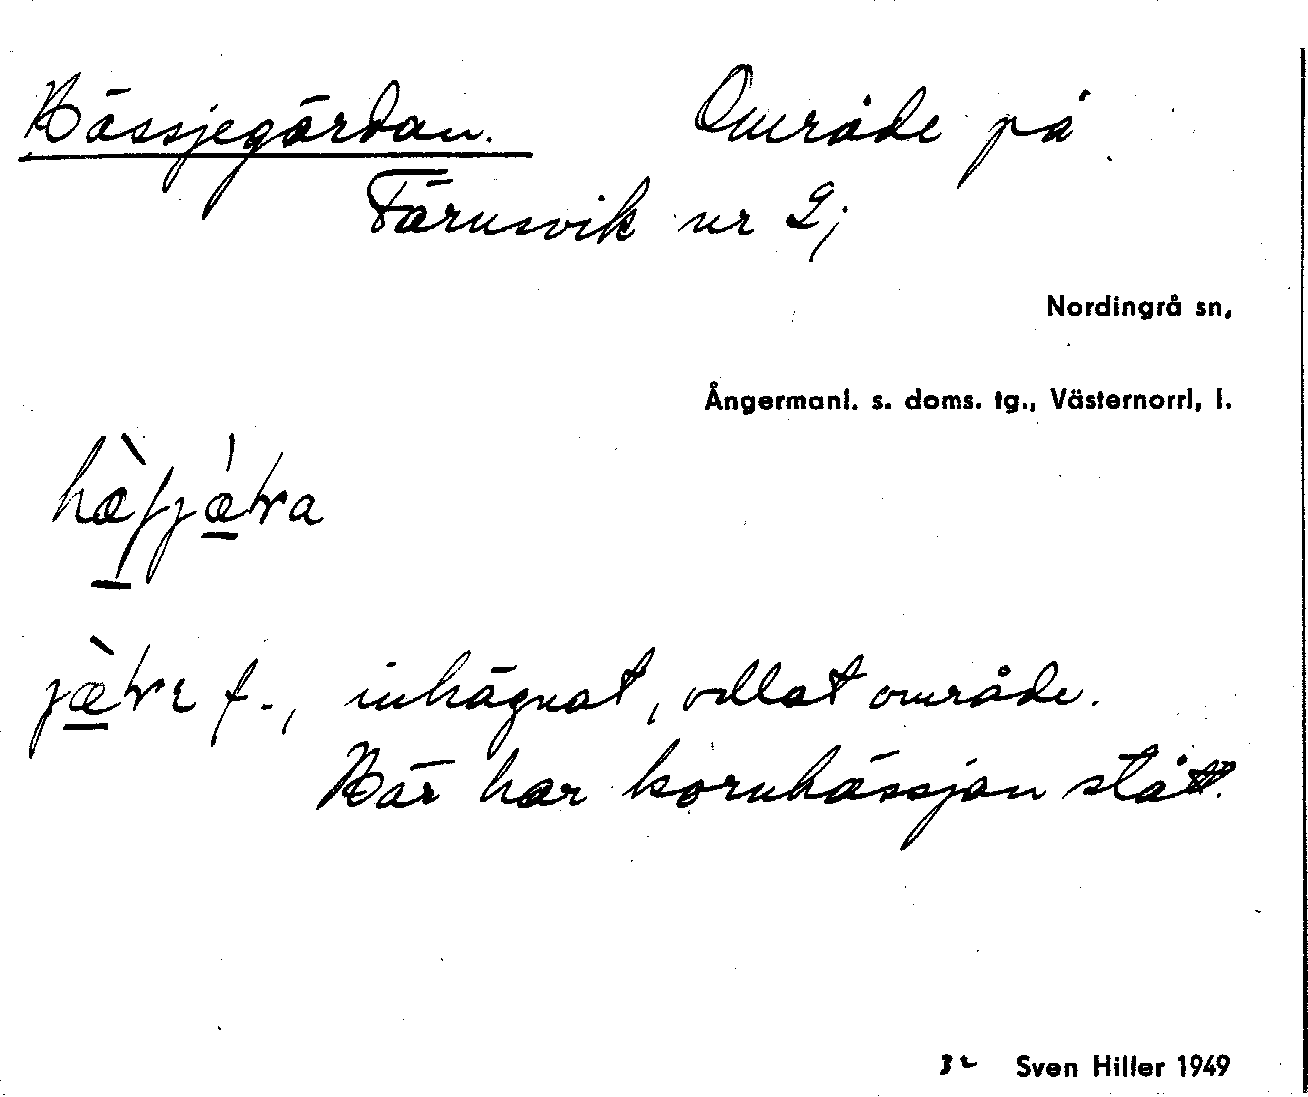 Hässjegärdan. Område på
Färnsvik nr 2;
Nordingrå sn,
Ångermanl. s. doms. tg., Västernorrl, l.
f., inhägnat, odlat område.
Här har kornhässjan stått.
Sven Hiller 1949